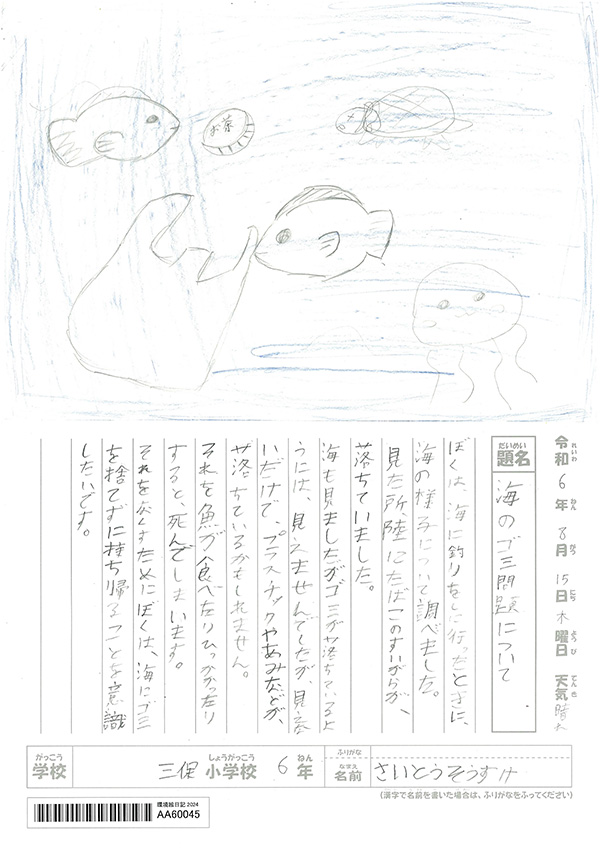 お茶
令和6年8月15日木曜日 天気 晴れ
れいわ ねん がつ にち ようび てんき
だいめい
題名 海のゴミ問題について
ぼくは、海に釣りをしに行ったときに、
海の様子について調べました。
見た所、陸にたばこのすいがらが、
落ちていました。
海も見ましたがゴミが落ちているよ
うには、見えませんでしたが、見えな
いだけで、プラスチックやあみなどが、
落ちているかもしれません。
それを魚が食べたりひっかかったり
すると、死んでしまいます。
それを無くすためにぼくは、海にゴミ
を捨てずに持ち帰ることを意識
したいです。
がっこう しょうがっこう ねん
学校 三保小学校 6年
ふりがな
なまえ
名前 さいとうそうすけ
(漢字で名前を書いた場合は、ふりがなをふってください)
環境絵日記2024
AA60045